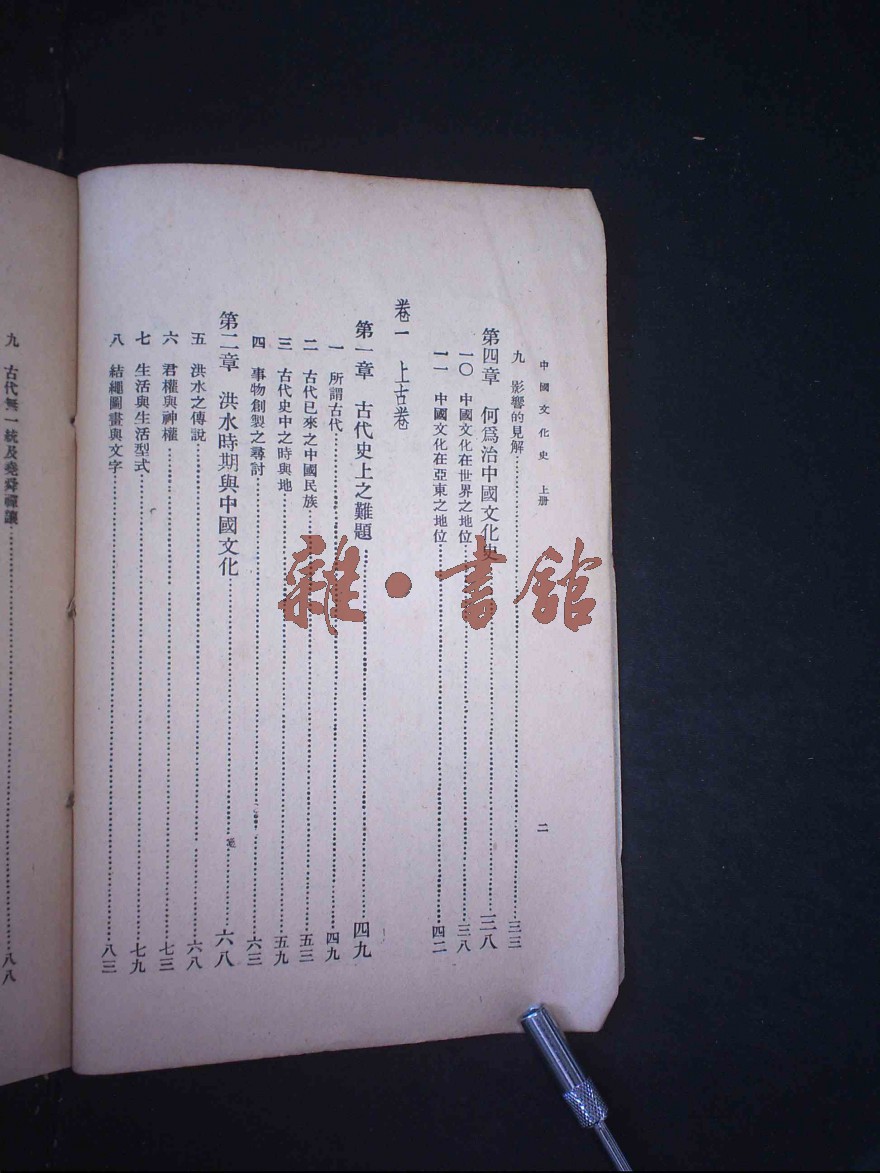 中國文化史 上册 二
九 影響的見解 三三
第四章 何爲治中國文化史 三八
一〇 中國文化在世界之地位 三八
一一 中國文化在亞東之地位 四二
卷一 上古卷
第一章 古代史上之難題 四九
一 所謂古代 四九
二 古代已來之中國民族 五三
三 古代史中之時與地 五九
四 事物創製之尋討 六三
第二章 洪水時期與中國文化 六八
五 洪水之傳說 六八
六 君權與神權 七三
七 生活與生活型式 七九
八 結繩圖畫與文字 八三
九 古代無一統及堯舜禪讓 八八
雜·書館